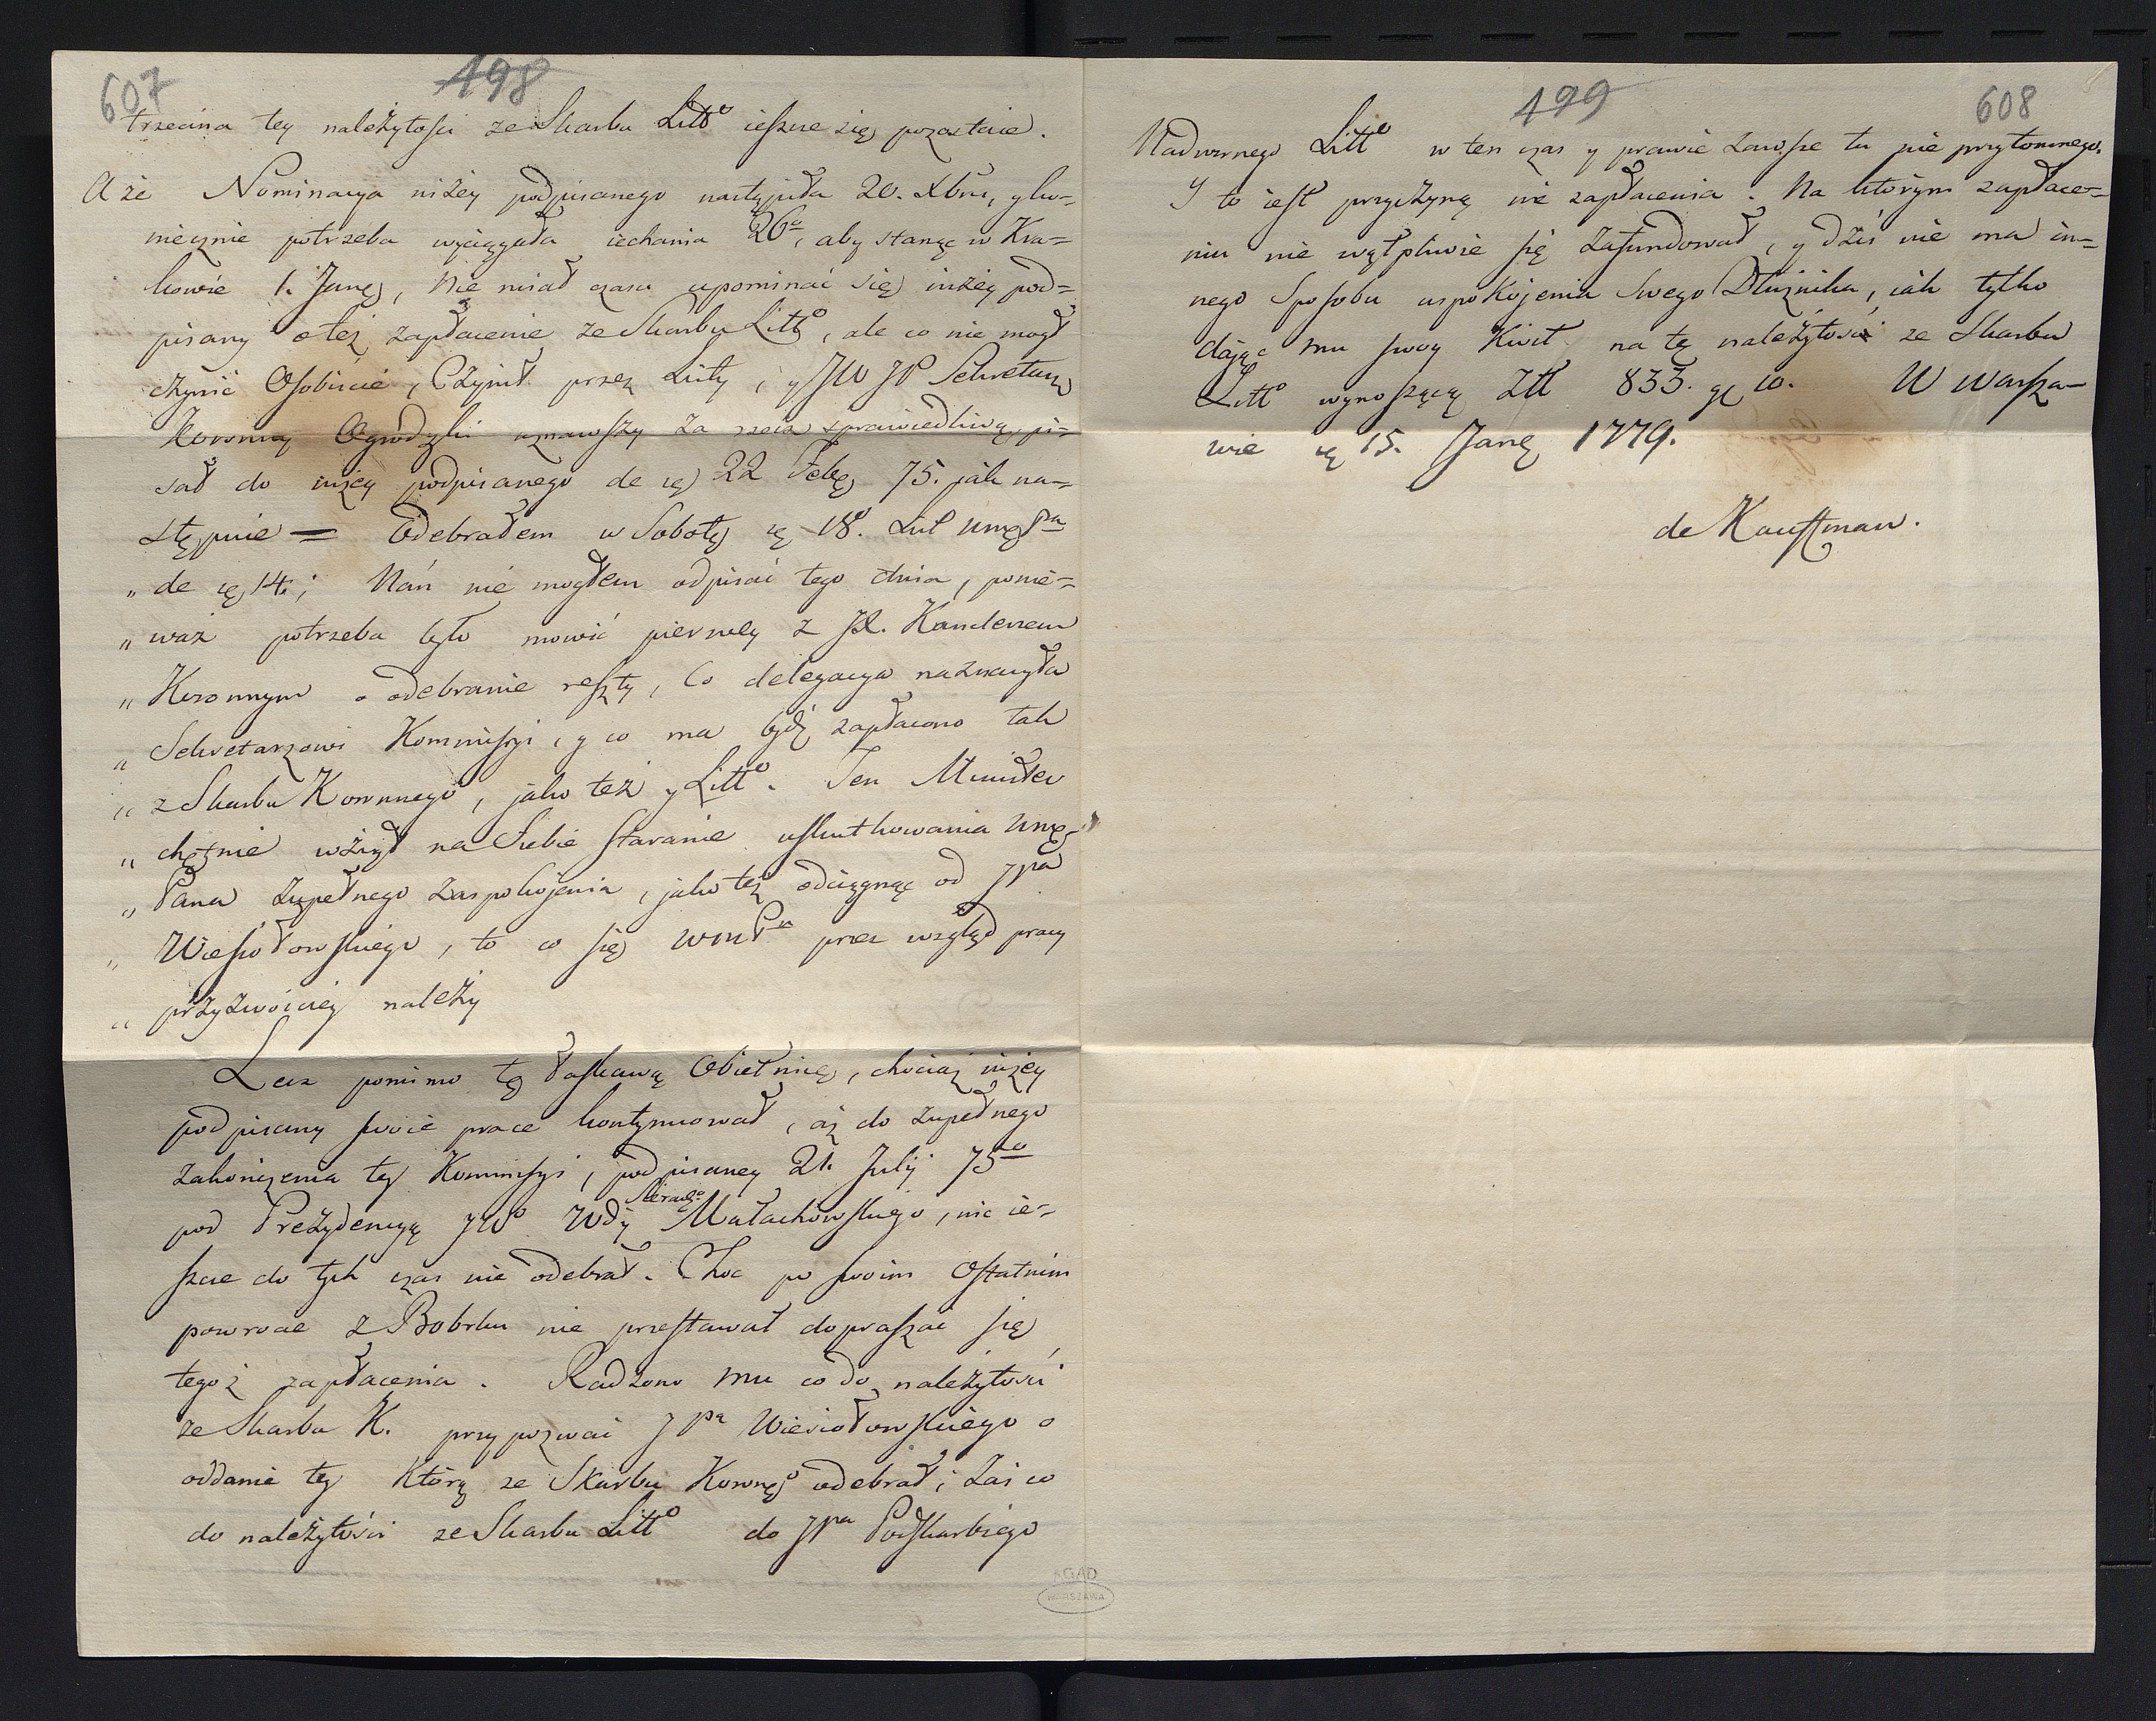 607
498
trzecina tey należytości ze Skarbu Litt° ieszcze się pozostaie.
A że Nominacya niżey podpisanego nastąpiła 20. Xbra, y ko-
niecznie potrzeba wyciągała iechania 26°, aby stanąć w Kra-
kowie 1. Janę, Nie miał czasu upominać się niżey pod-
pisany o też zapłacenie ze Skarbu Litt°, ale co nie mogł
czynić Osobiscie, Czynił przez Listy, y JW JP Sekretarz
Koronny Ogrodzki uznawszy za rzecz sprawiedliwą, pi-
sał do niżey podpisanego de 22 Febr. 75. jak na-
stępuie = Odebrałem w Sobotę 18. List
„ de 14.; Nań nie mogłem odpisać tego dnia, ponie-
„ waż potrzeba było mowić pierwey z JX. Kanclerzem
„ Koronnym o odebranie reszty, Co delegacya naznaczyła
„ Sekretarzowi Kommissyi, y co ma bydź zapłacono tak
„ z Skarbu Koronnego, jako też y Litt°. Ten Minister
„ chętnie wziął na Siebie staranie uskutkowania
„ Pana zupełnego zaspokojenia, jako też odciągnąć od JPa
„ Wiesiołowskiego, to co się WmPa przez wzgląd pracy
„ przyzwoiciey należy
Lecz pomimo tę łaskawą Obietnicę, chociaż niżey
podpisany swoie prace kontynuował, aż do zupełnego
zakończenia tey Kommissyi, podpisaney 21. Julij 75to
Sieradz°
pod Prezydencyą JW° Wdy Małachowskiego, nic ie-
szcze do tych czas nie odebrał. Choc po swoim Ostatnim
powrocie z Bobrku nie przestawał dopraszać się
tegoż zapłacenia. Radzono mu co do należytości
ze Skarbu K. przypozwać JPa Wiesiołowskiego o
oddanie tey którą ze Skarbu Koronne° odebrał; zaś co
do należytości ze Skarbu Litt° do JPa Podskarbiego
AGAD
WARSZAWA
499
608
Nadwornego Litt° w ten czas y prawie zawsze tu nie przytomnego.
Y to iest przyczyną nie zapłacenia. Na którym zapłace-
niu nie wątpliwie się zafundował, y dziś nie ma in-
nego Sposobu uspokojenia Swego Dłużnika, iak tylko
dając mu swoy Kwit na tę należytość ze Skarbu
Litt° wynoszącą Ztt 833. g 10. W Warsza-
wie 15. Janę 1779.
de Kauffman.